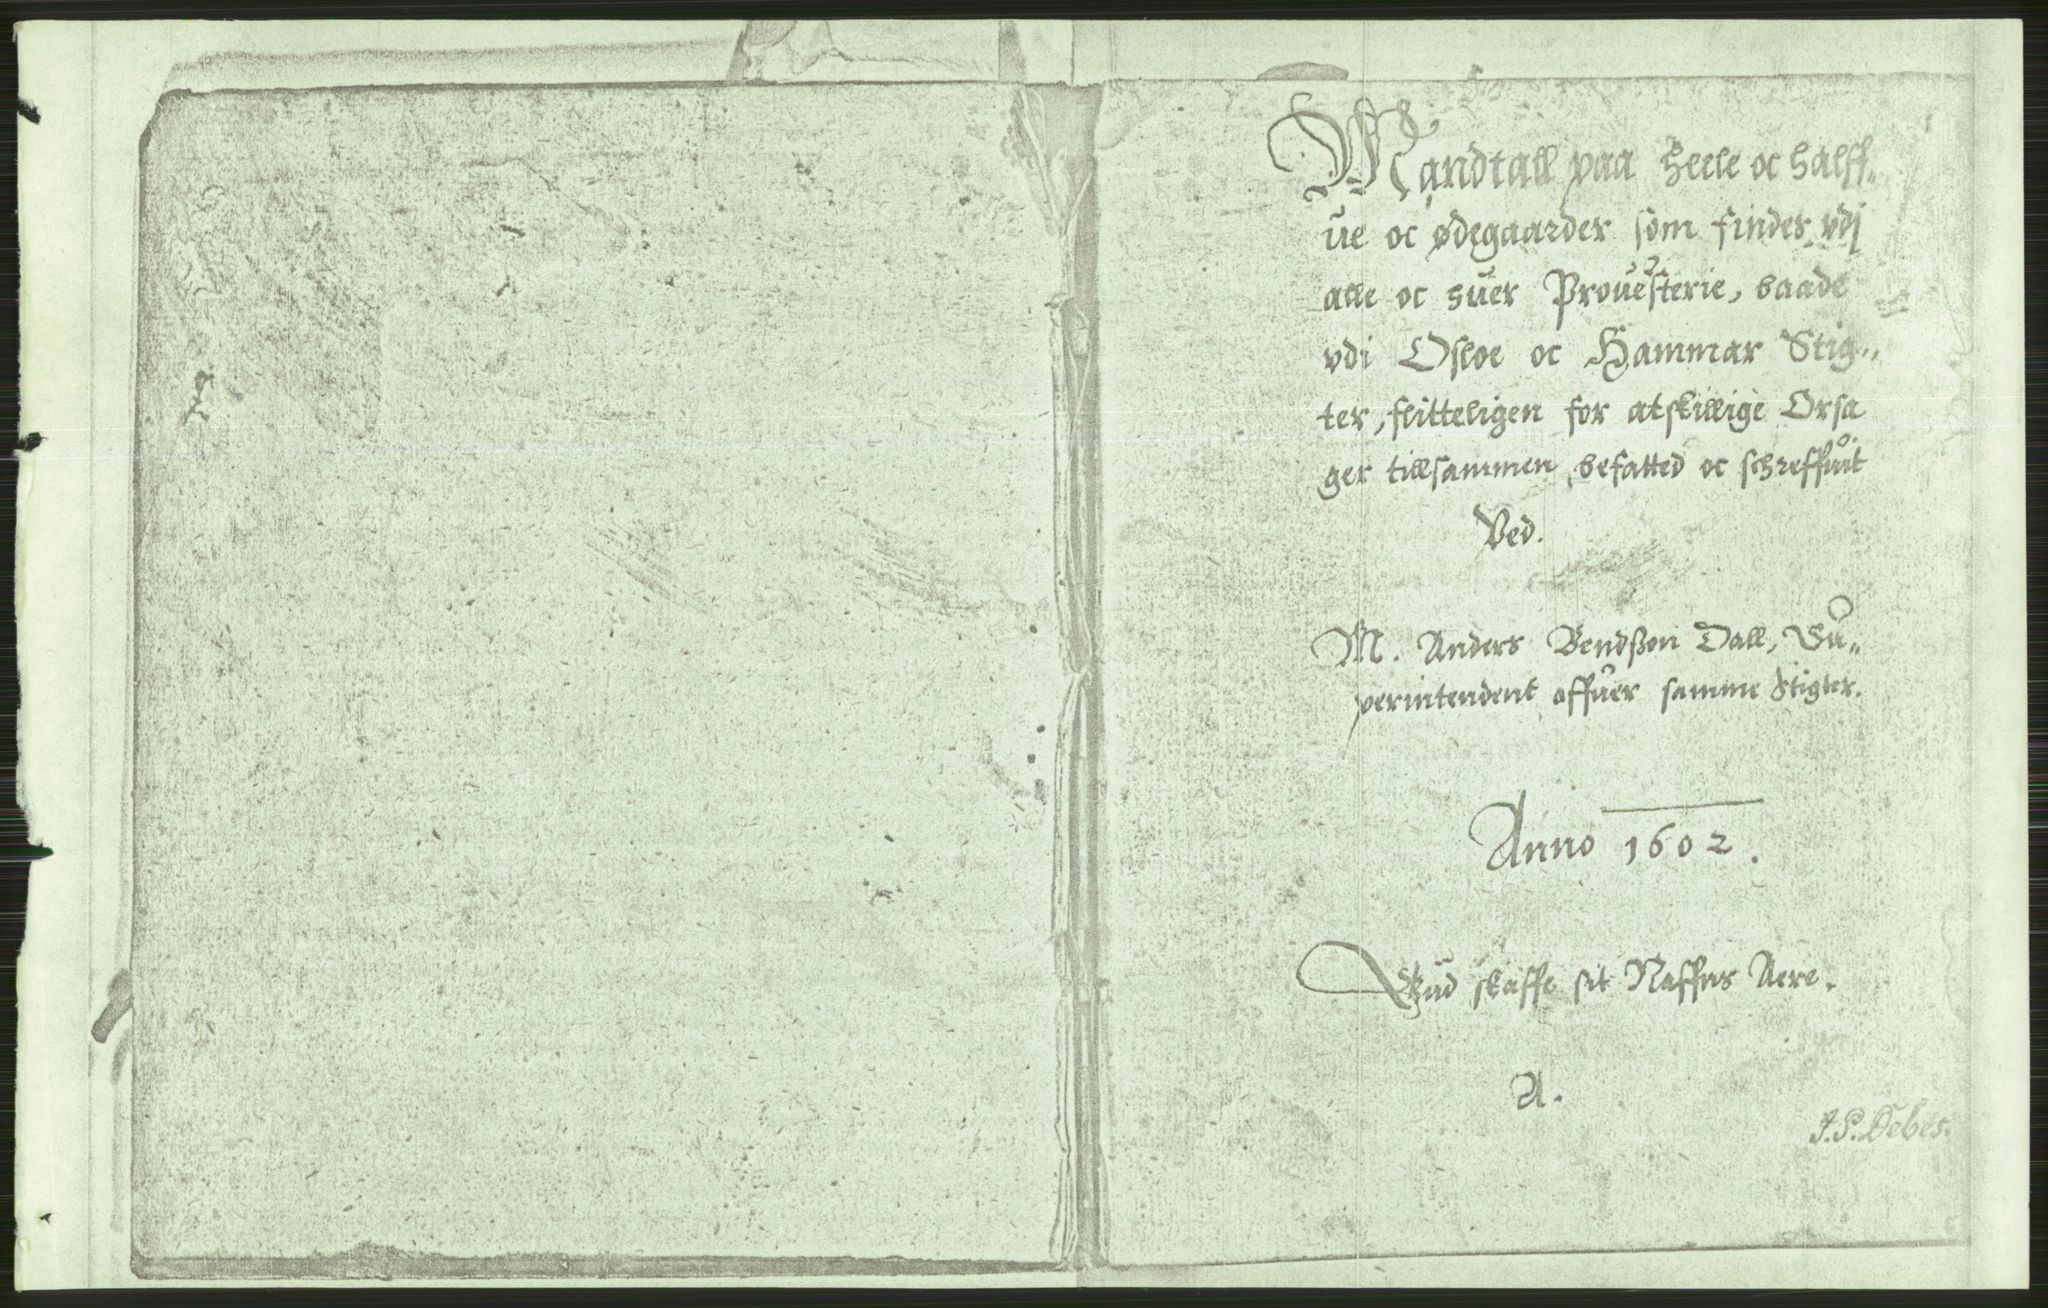 Mandtall paa heele oc halff„
ue oc ødegaarder som findes vdj
alle oc huer Prouesterie, baade
vdi Osloe oc Hammar Stig„
ter, flitteligen for atskillige Orsa
ger tillsammen befatted oc schreffuit
Ved.
M. Anders Bendßøn Dall, Su„
perintendent offuer samme Stigter.
Anno 1602.
Gud skaffe sit Naffns Aere.
A.
J.P. Debes.